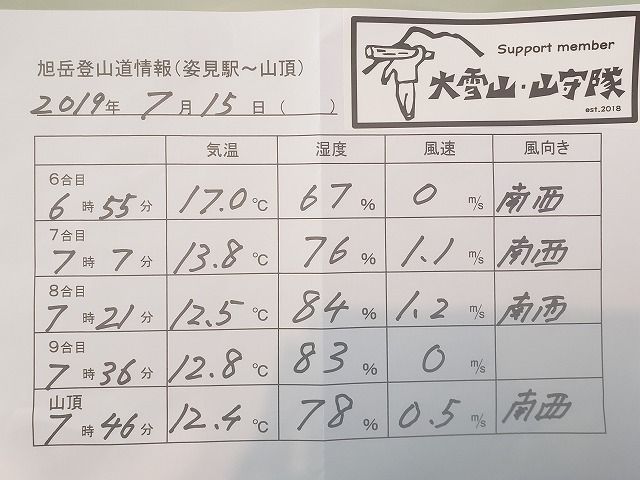 旭岳登山道情報(姿見駅～山頂)
2019年 7月15日( )
Support member
大雪山・山守隊
est.2018
気温 湿度 風速 風向き
6合目
6時55分 17.0℃ 67% 0 m/s 南西
7合目
7時7分 13.8℃ 76% 1.1 m/s 南西
8合目
7時21分 12.5℃ 84% 1.2 m/s 南西
9合目
7時36分 12.8℃ 83% 0 m/s
山頂
7時46分 12.4℃ 78% 0.5 m/s 南西